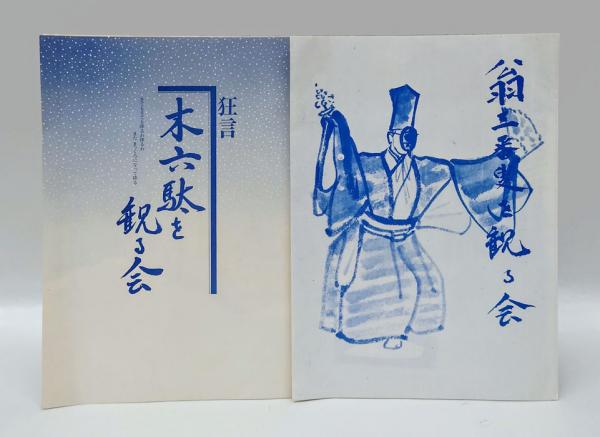 狂言
木六駄を
観る会
翁三番叟を観る会